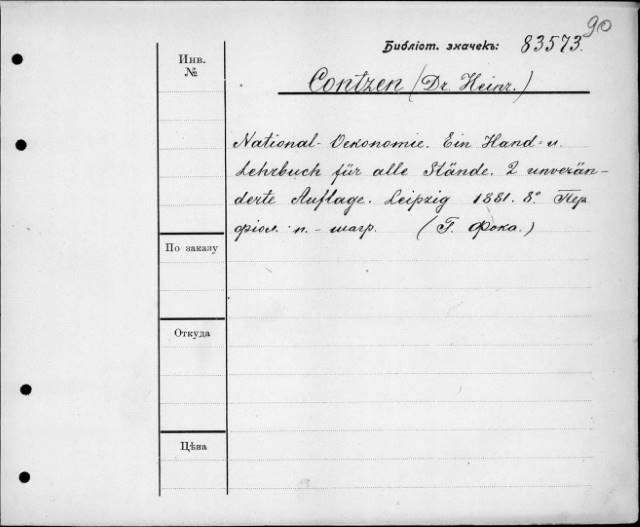 90
Библіот. значекъ: 83573.
Инв.
№
Contzen (Dr. Heinr.)
National-Oekonomie. Ein Hand- u.
Lehrbuch für alle Stände. 2 unverän-
derte Auflage. Leipzig 1881. 8.° Пер
фіол. п.-шагр. (Г. Фока.)
По заказу
Откуда
Цѣна